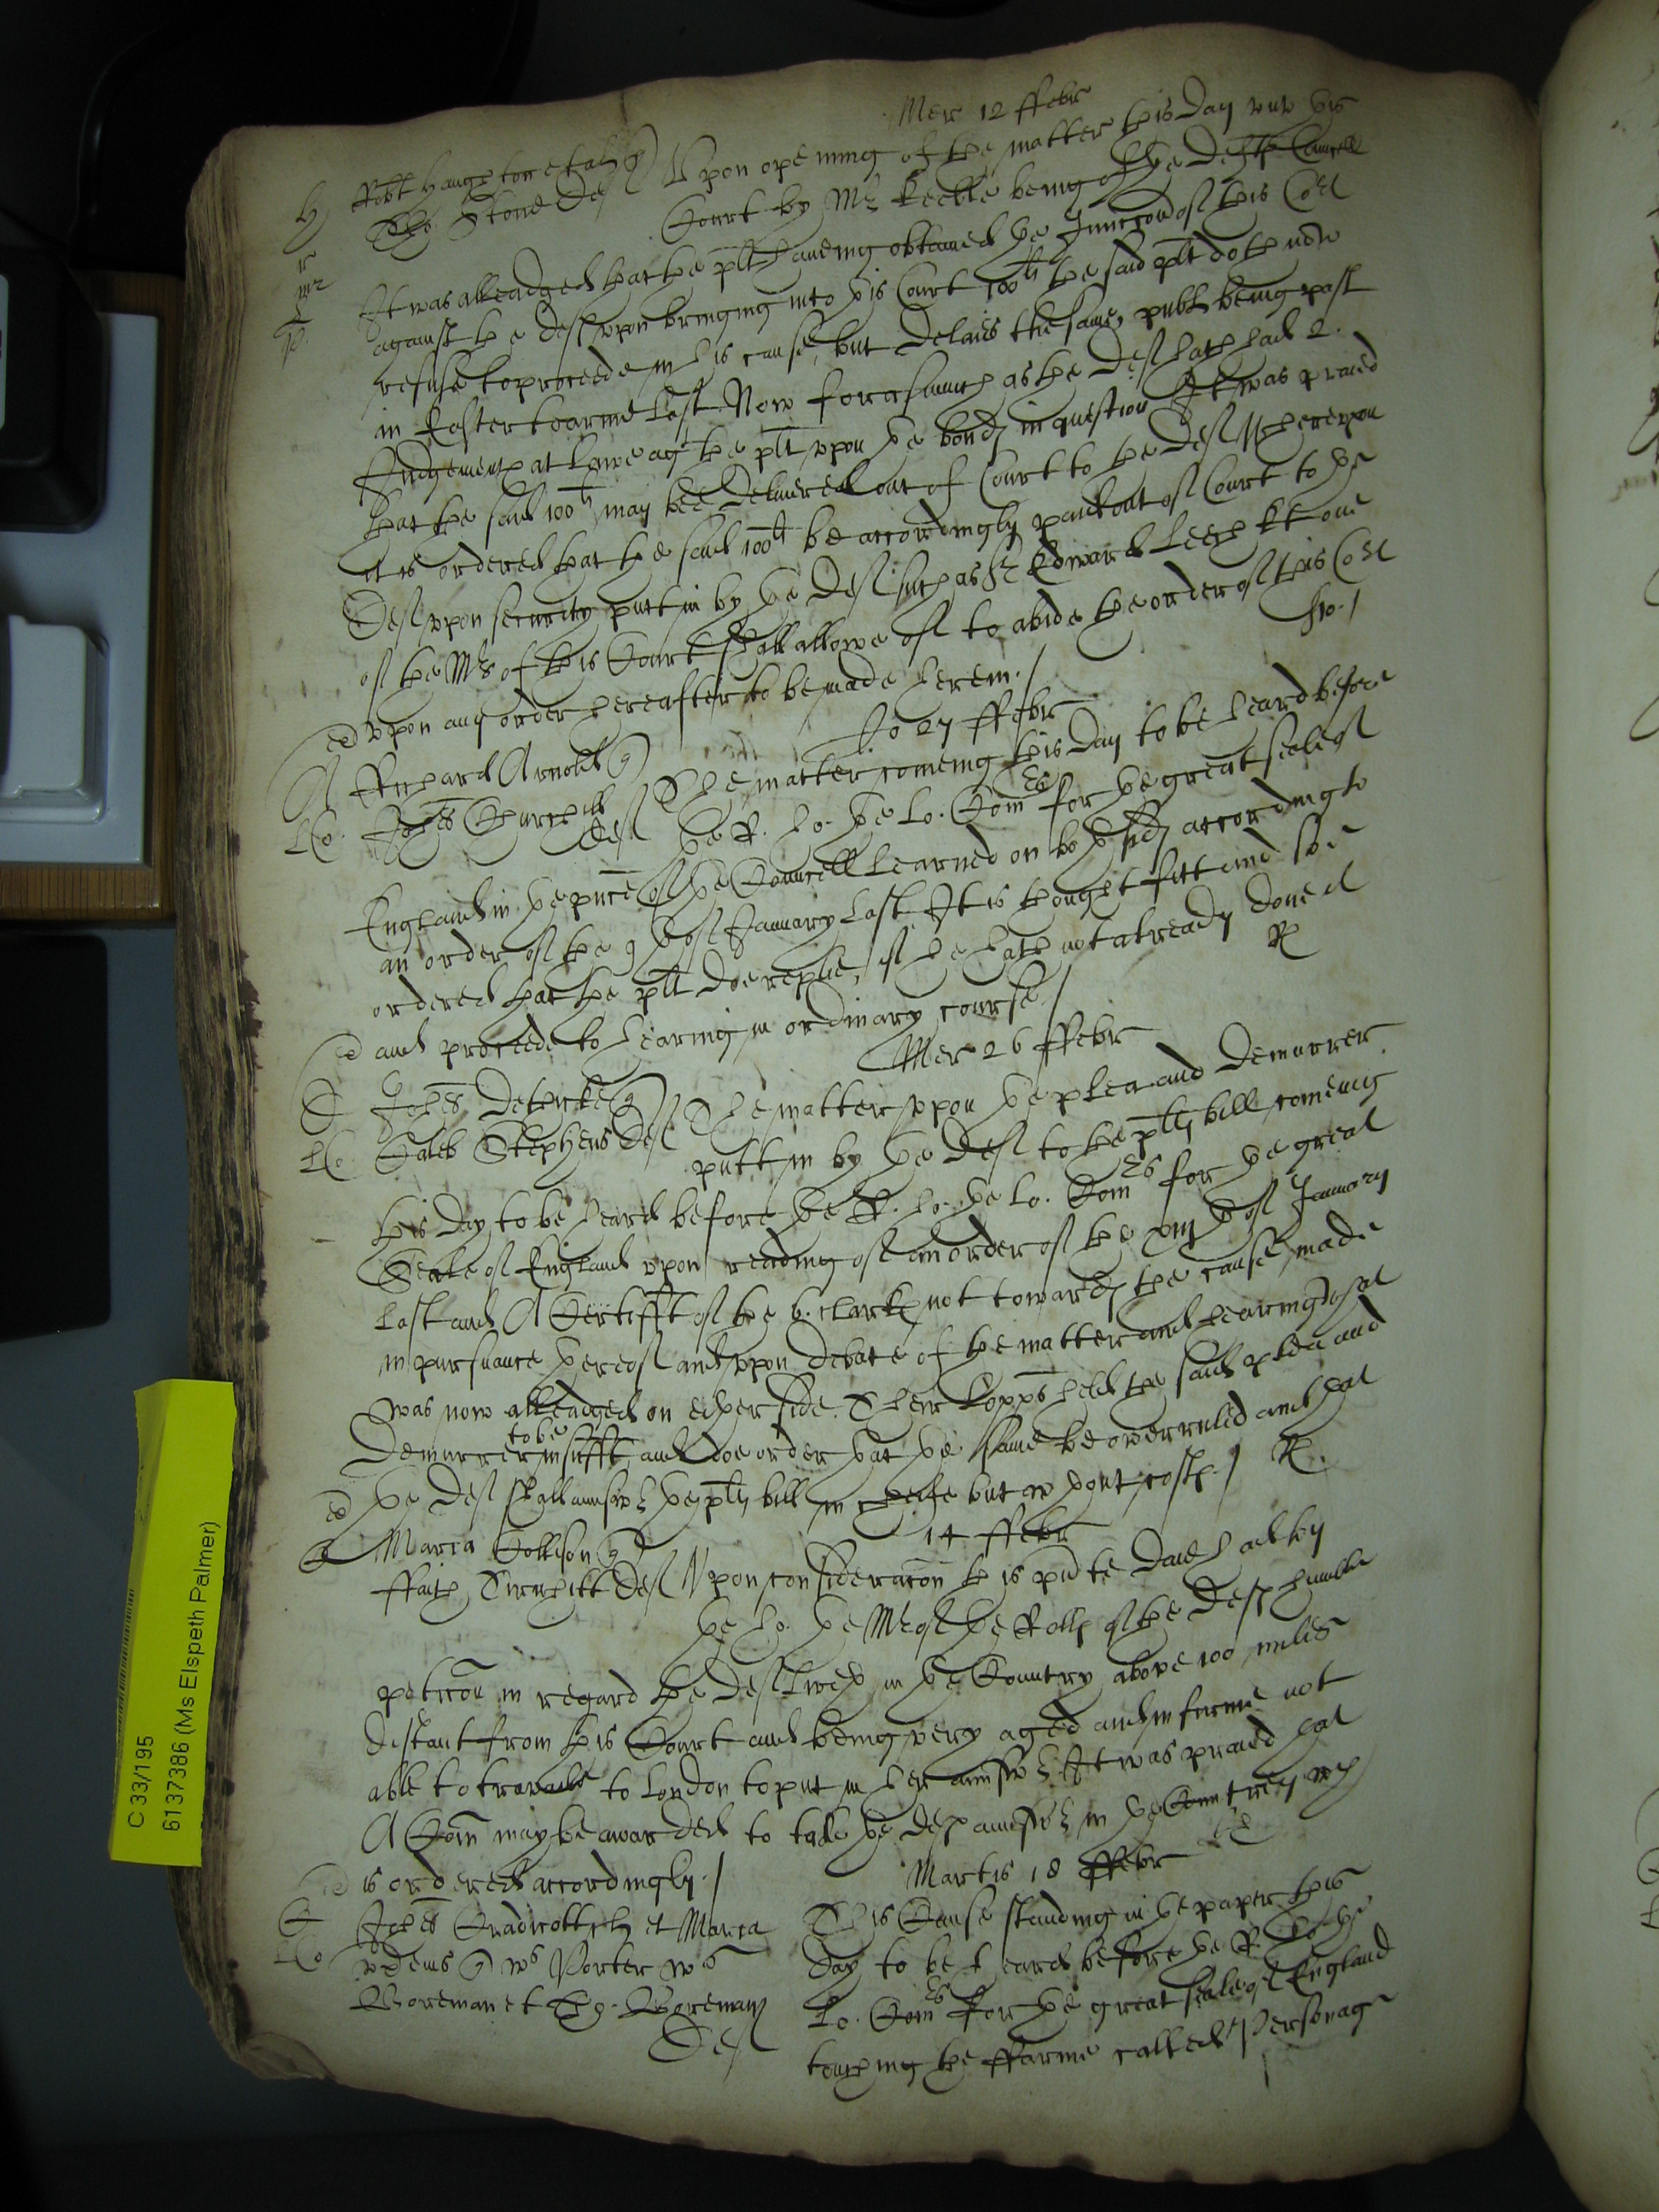 Mer 12 ffebr
h Robt Haughton et al q Upon opening of the matter this day unto this
Tho: Stone Def Court by Mr Keeble being of the Def Councell
It was alleadged that the plt haveing obtained the Junccon of this Cort
against the Def upon bringing into this Court 100li the said plt doth now
refuse to proceede in his cause, but delaies the same, publ being past
in Easter tearme last. Now forasmuch as the Def hath had 2.
Judgements at lawe agt the plt upon the bonds in question It was praied
that the said 100li may bee delivered out of Court to the Def Whereupon
it is ordered that the said 100li be accordingly paid out of Court to the
Def upon security putt in by the Def such as Sr Edward Leech kt one
of the Mrs of this Court shall allowe of to abide the order of this Cort
ed upon any order hereafter to be made herein./
Jo 27 ffebr
A Richard Arnold q The matter comeing this day to be heard before
LCo. Johes Churchill Def the R. ho: the Lo. Comrs for the great seale of
England in the pnce of the Councell learned on both sids according to
an order of the 9th of January last. It is thought fitt and soe
ordered that the plt doe replie, if he hath not already done it
ed and proceede to hearing in ordinary course./ R
Mer 26 ffebr
D Johes Dethicke q The matter upon the plea and demurrer
LCo. Caleb Stephens Def putt in by the Def to the plts bill comeing
this day to be heard before the R. ho. the Lo. Comrs for the great
Seale of England upon reading of an order of the xiijth of January
last and A Certifft of the 6. clarks not towards the cause, made
in pursuance thereof and upon debate of the matter and hearing what
was now alleadged on either side. Their Lopps held the said plea and
demurrer to be insufft, and doe order that the same be overruled and that
ed the Def shall answr the plts bill in cheife but wthout costs./ R.
14 ffebr
C Maria Collison q
ffaith Twichitt Def Upon consideracon this pnte daie had by
the ho. the Mr of the Rolls of the Defts humble
peticon in regard the Def liveth in the Countrey above 100 miles
distant from this Court and being very aged and infirme not
able to travaile to London to put in her answr It was praied that
A Comn may be awarded to take the Defts answr in the Countrey wch
ed is ordered accordingly./
Martis 18 ffebr
C Johes Cradicott et Maria This Cause standing in the paper this
LCo. q Ws Porter Ws day to be heard before the R. ho. the
Boreman et Tho. Boreman Lo. Comrs for the great seale of England
Def touching the ffarme called Personag
C 33/195
6137386 (Ms Elspeth Palmer)